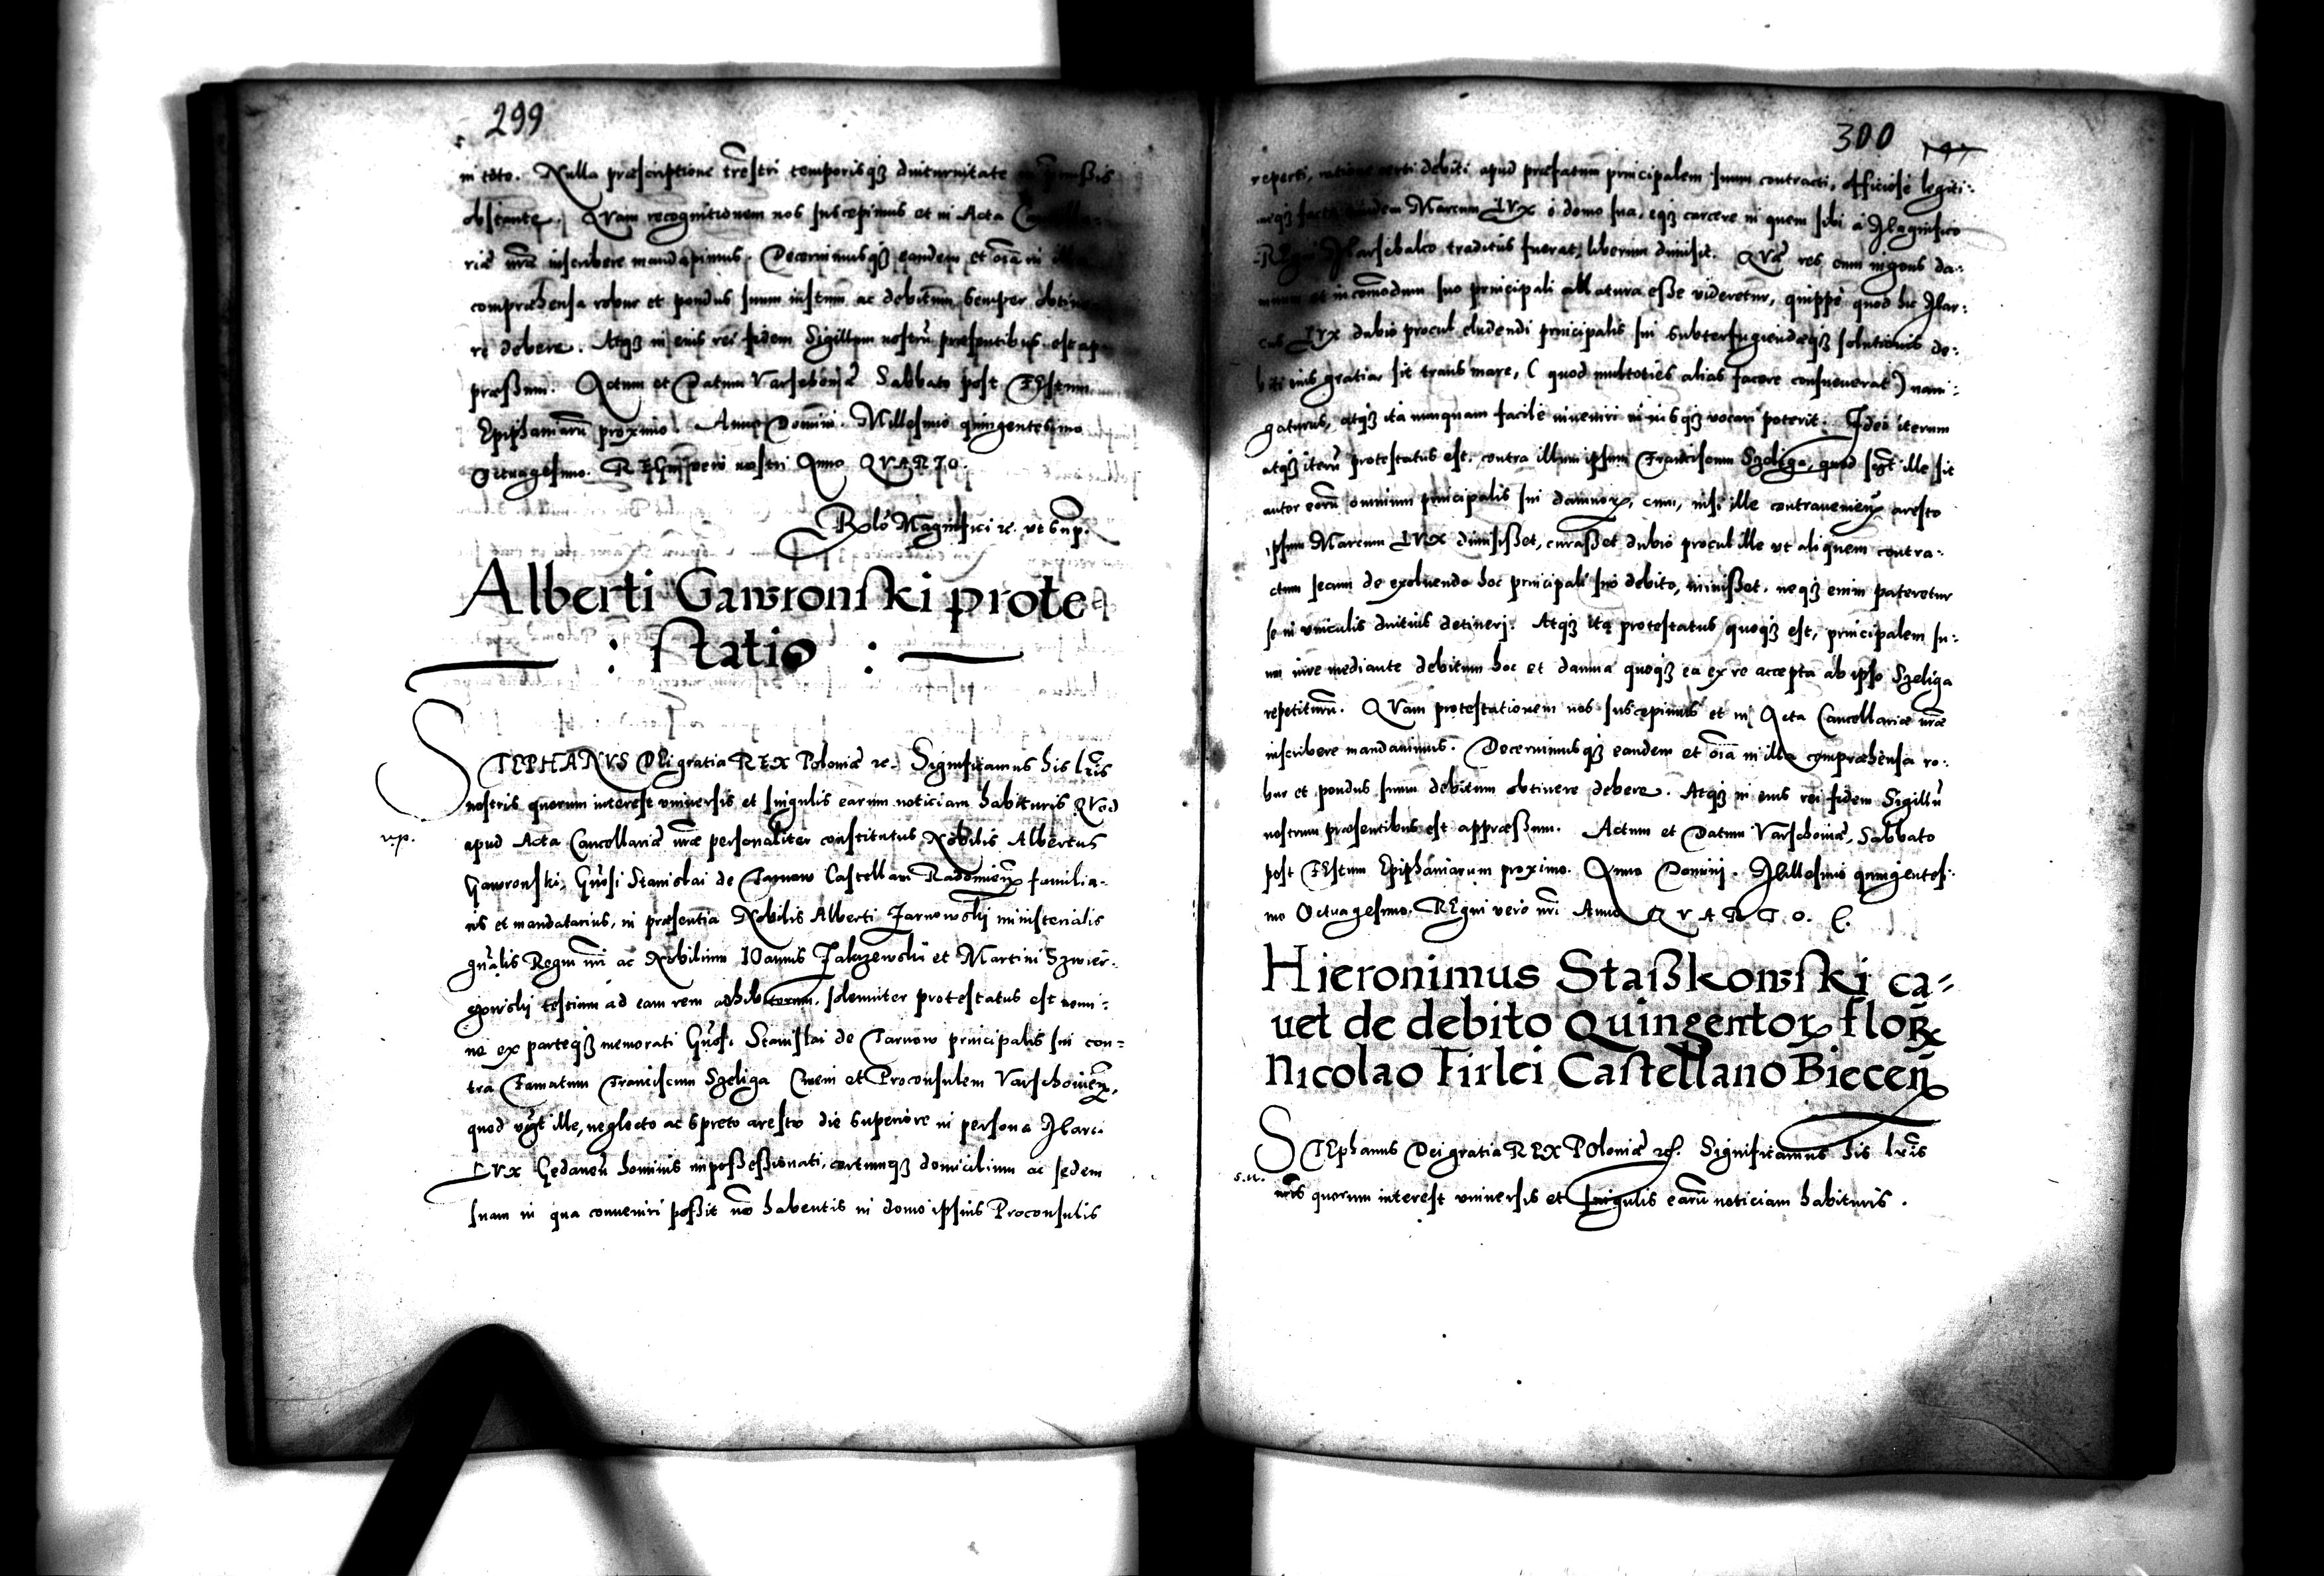 299
in toto. Nulla præscriptione trestri temporisqꝫ diuturnitate in præmißis
obstante. QVam recognitionem nos suscepimus et in Acta
riæ nræ inscribere mandauimus. Decernimusqꝫ eandem et oīa in illa
compræhensa robur et pondus suum iustum ac debitum semper obtine
re debere. Atqꝫ in eius rei fidem Sigillum nostrū præsentibus est ap
præßum. Actum et Datum Varschouiæ Sabbato post FEstum
Epiphaniarū proximo. Anno Domini. Millesimo quingentesimo
Octuagesimo. REgni vero nostri Anno QVARTO.
Rlō Magnifici ꝛc. vt sup.
Alberti Gawronski prote
: statio :
STEPHANVS DEi gratia REX Poloniæ ꝛc. Significamus his lrīs
nostris quorum interest vniuersis et singulis earum noticiam habituris QVod
apud Acta Cancellariæ nræ personaliter constitutus Nobilis Albertus
Gawronski, Gnōsi Stanislai de Tarnow Castellani Radomien familia-
ris et mandatarius, in præsentia Nobilis Alberti Jarnowskij ministerialis
gnālis Regni nri ac Nobilium IOannis Zaluzewskii et Martini Szwier-
czewskij testium ad eam rem adhibitorum, solemniter protestatus est nomi-
ne ex parteqꝫ memorati Gnōsi Stanislai de Tarnow principalis sui con=
tra Famatum Franciscum Szeliga Ciuem et Proconsulem Varschouien,
quod ille, neglecto ac spreto aresto die superiore in persona Marci
LVx Gedanen hominis impoßeßionati, certumqꝫ domicilium ac sedem
suam in qua conueniri poßit nō habentis in domo ipsius Proconsulis
300
reperti, ratione certi debiti apud præfatum principalem suum contracti, officiose legiti-
meqꝫ facto eundem Marcum LVx è domo sua, eqꝫ carcere in quem sibi à Magnifico
REgni Marschalco traditus fuerat, liberum dimisit. QVæ res cum ingens da-
mnum et incōmodum suo principali allatura eße videretur, quippe quod hic Mar-
cus LVx dubio procul eludendi principalis sui subterfugiendæqꝫ solutionis de-
biti eius gratia sit trans mare, (quod multoties alias facere consueuerat) naui-
gaturus, atqꝫ ita nunquam facile inueniri in iusqꝫ vocari poterit. Ideo iterum
atqꝫ iterū protestatus est, contra illum ipsum Franciscum Szeliga, quod ille sit
autor eorū omnium principalis sui damnorꝫ, cum, nisi ille contraueniens aresto
ipsum Marcum LVx dimisißet, curaßet dubio procul ille vt aliquem contra-
ctum secum de exoluendo hoc principali suo debito, inißet. neqꝫ enim pateretur
se in vinculis diutius detineri. Atqꝫ ita protestatus quoqꝫ est, principalem su-
um iure mediante debitum hoc et damna quoqꝫ ea ex re accepta ab ipso Szeliga
repetiturū. QVam protestationem nos suscepimus et in Acta Cancellariæ nræ
inscribere mandauimus. Decernimusqꝫ eandem et oīa in illa compræhensa ro-
bur et pondus suum debitum obtinere debere. Atqꝫ in eius rei fidem Sigillū
nostrum præsentibus est appræßum. Actum et Datum Varschouiæ, Sabbato
post FEstum Epiphaniarum proximo. Anno Domini. Millesimo quingentesi-
mo Octuagesimo. REgni vero nri Anno QVARTO.
Hieronimus Staßkowski ca-
uet de debito Quingentorꝫ florꝫ
Nicolao Firlei Castellano Biecen
STEphanus Dei gratia REX POloniæ ꝛc. Significamus his lrīs
nrīs quorum interest vniuersis et singulis earū noticiam habituris.